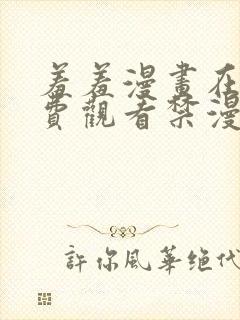 羞羞漫畫在
費觀看禁漫
許你風華绝代